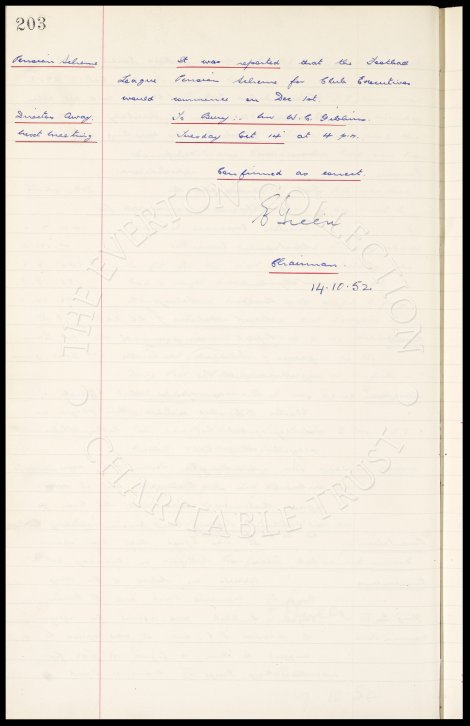 203
Pension Scheme It was reported that the Football
League Pension Scheme for Club Executives
would commence on Dec 1st.
Director Away. To Bury :- Mr W.C. Gibbins.
Next meeting Tuesday Oct 14 at 4 p.m.
Confirmed as correct.
E Green
Chairman.
14.10.52
© THE EVERTON COLLECTION
© CHARITABLE TRUST